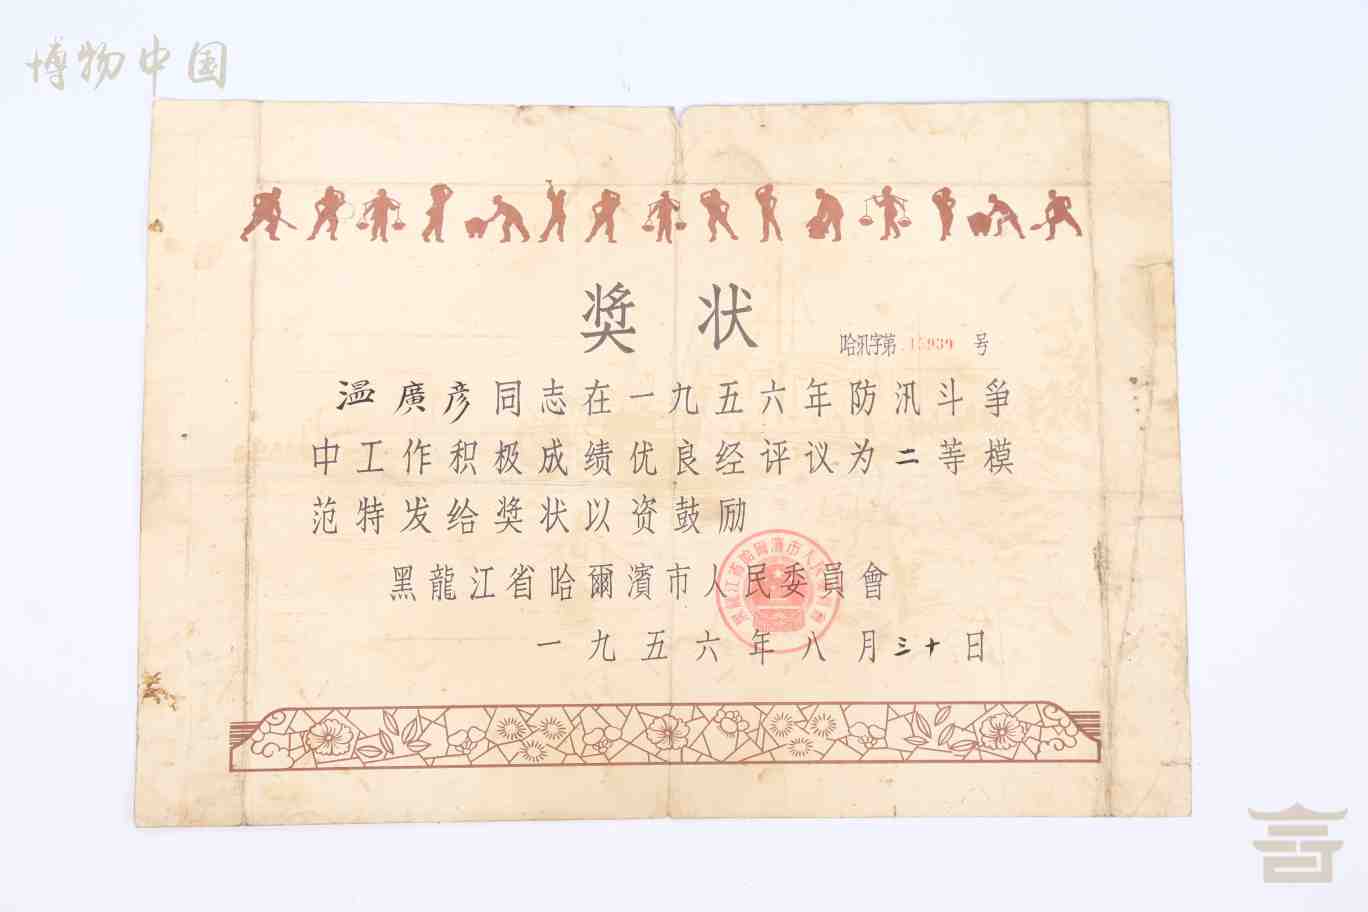 博物中国
奖状
哈汛字第 15939 号
温廣彦同志在一九五六年防汛斗争
中工作积极成绩优良经评议为二等模
范特发给奖状以资鼓励
黑龍江省哈爾濱市人民委員會
一九五六年八月三十日